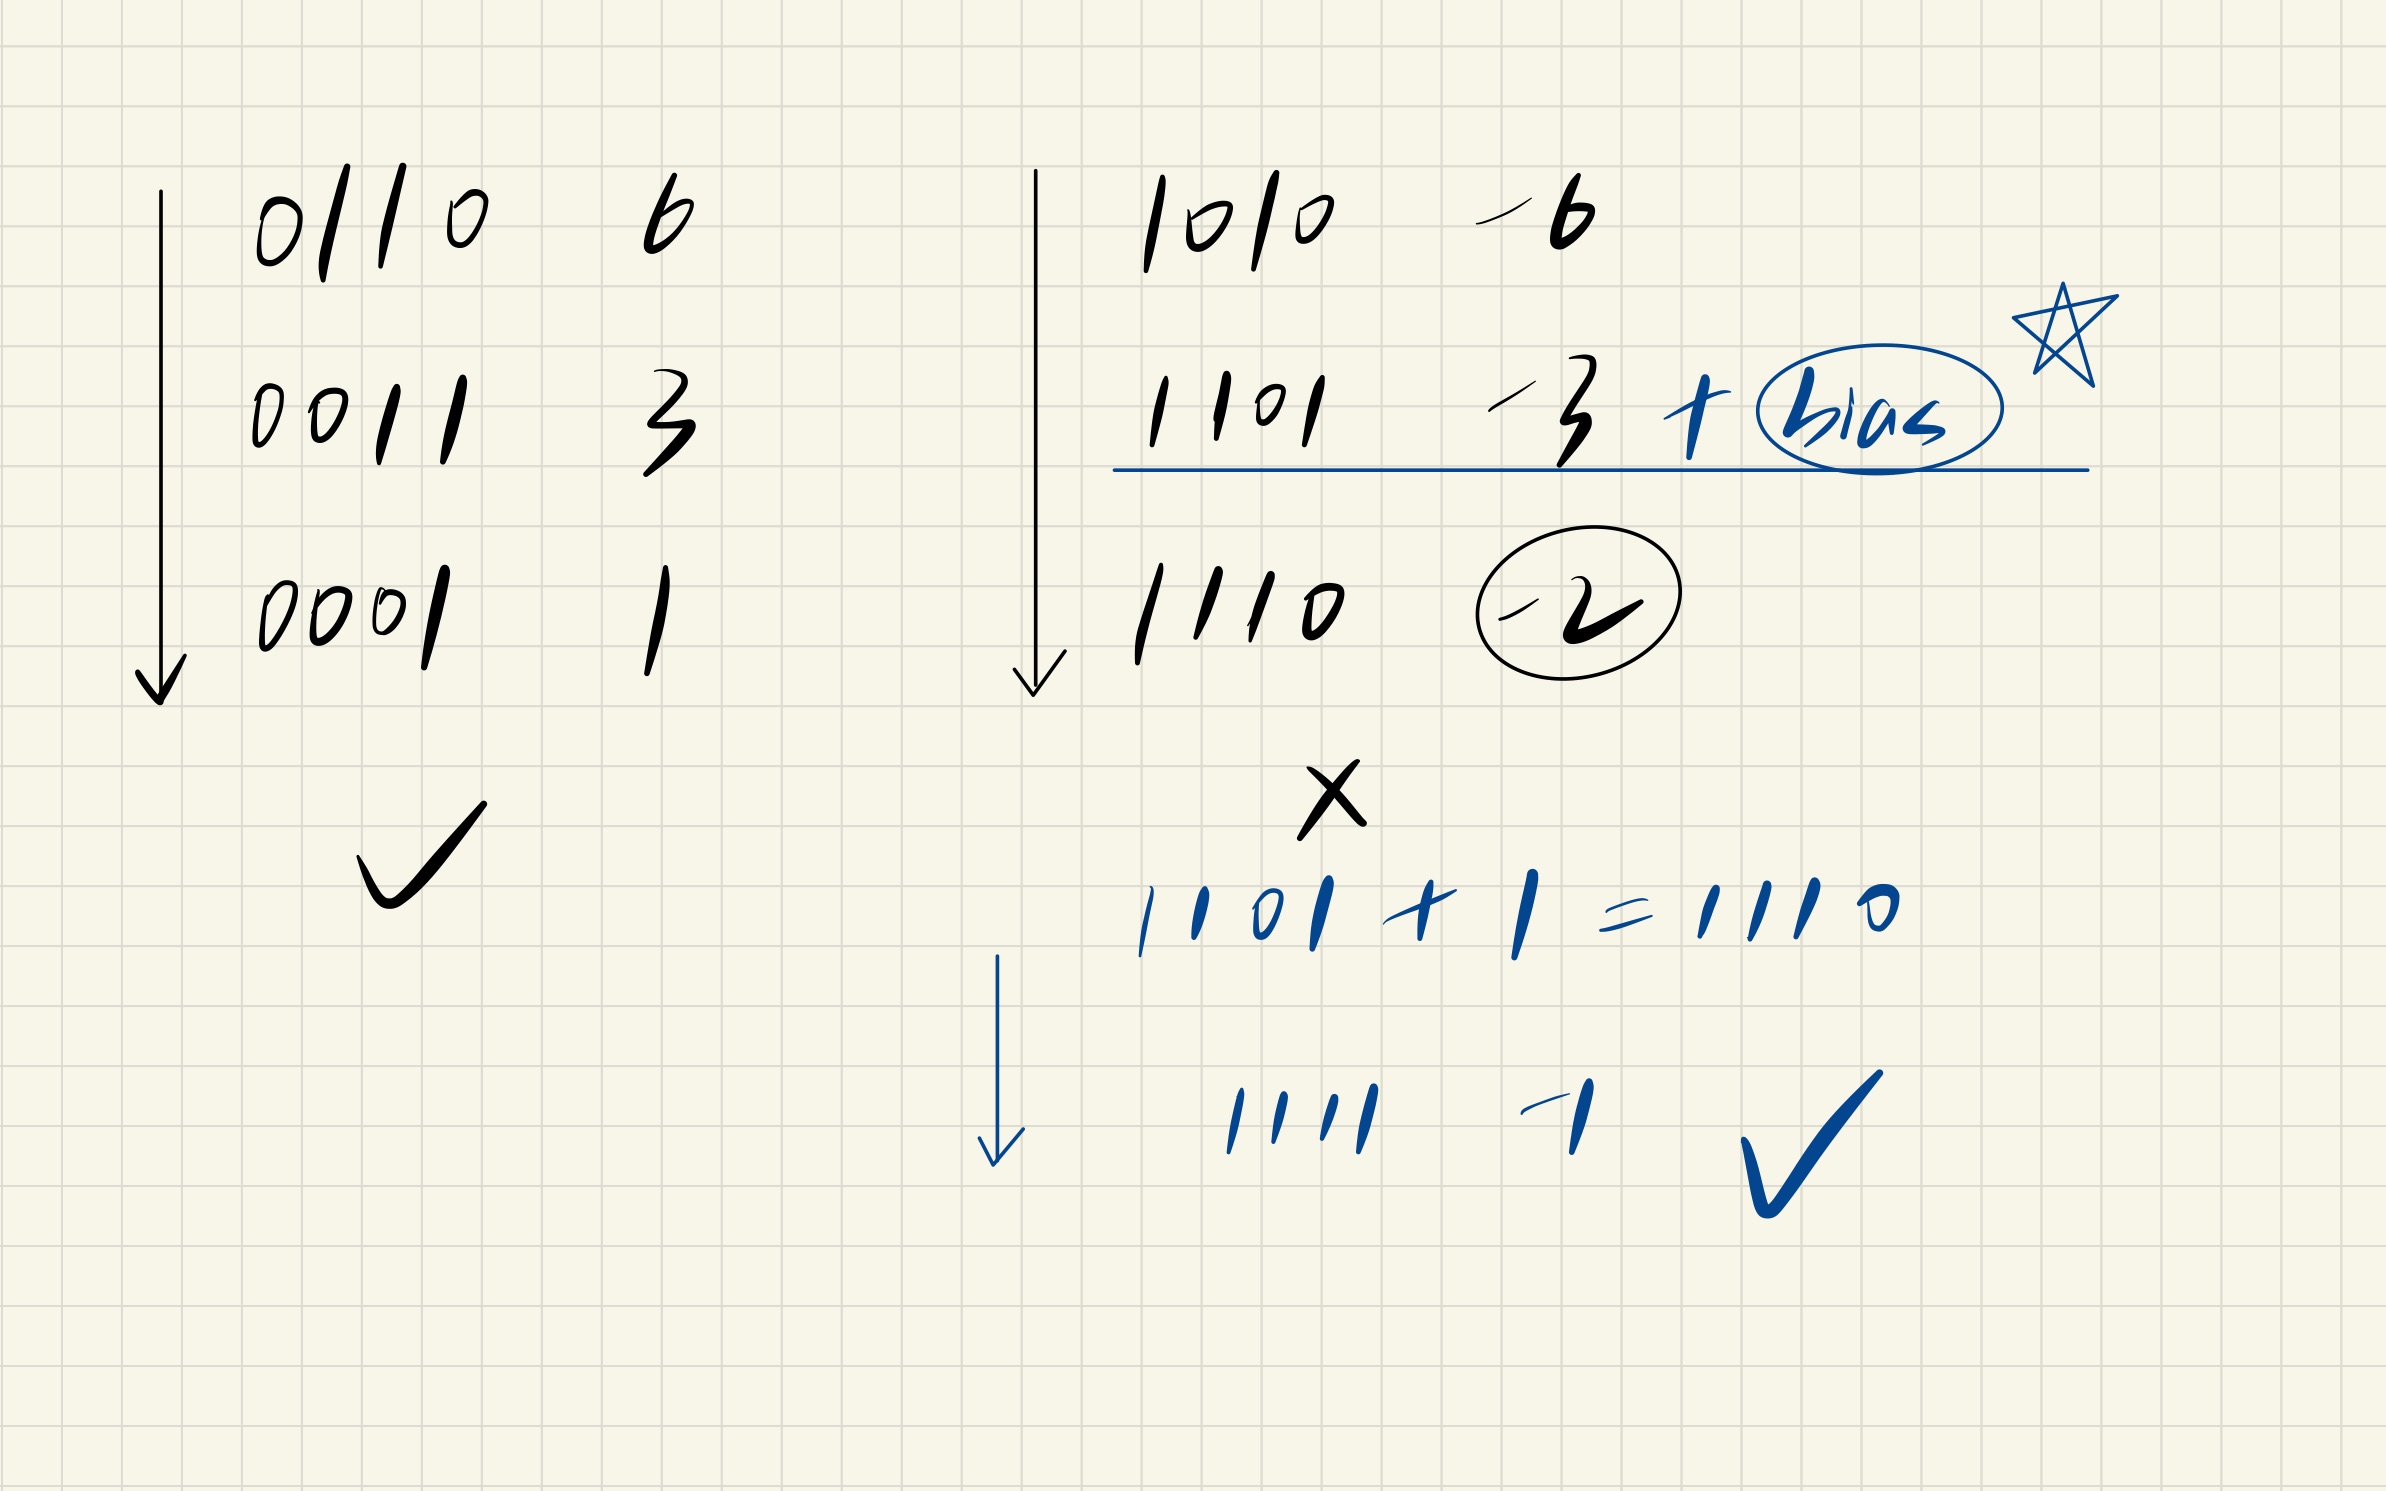 0110 6
0011 3
0001 1
1010 -6
1101 -3 + bias
1110 -2
1101 + 1 = 1110
1111 -1